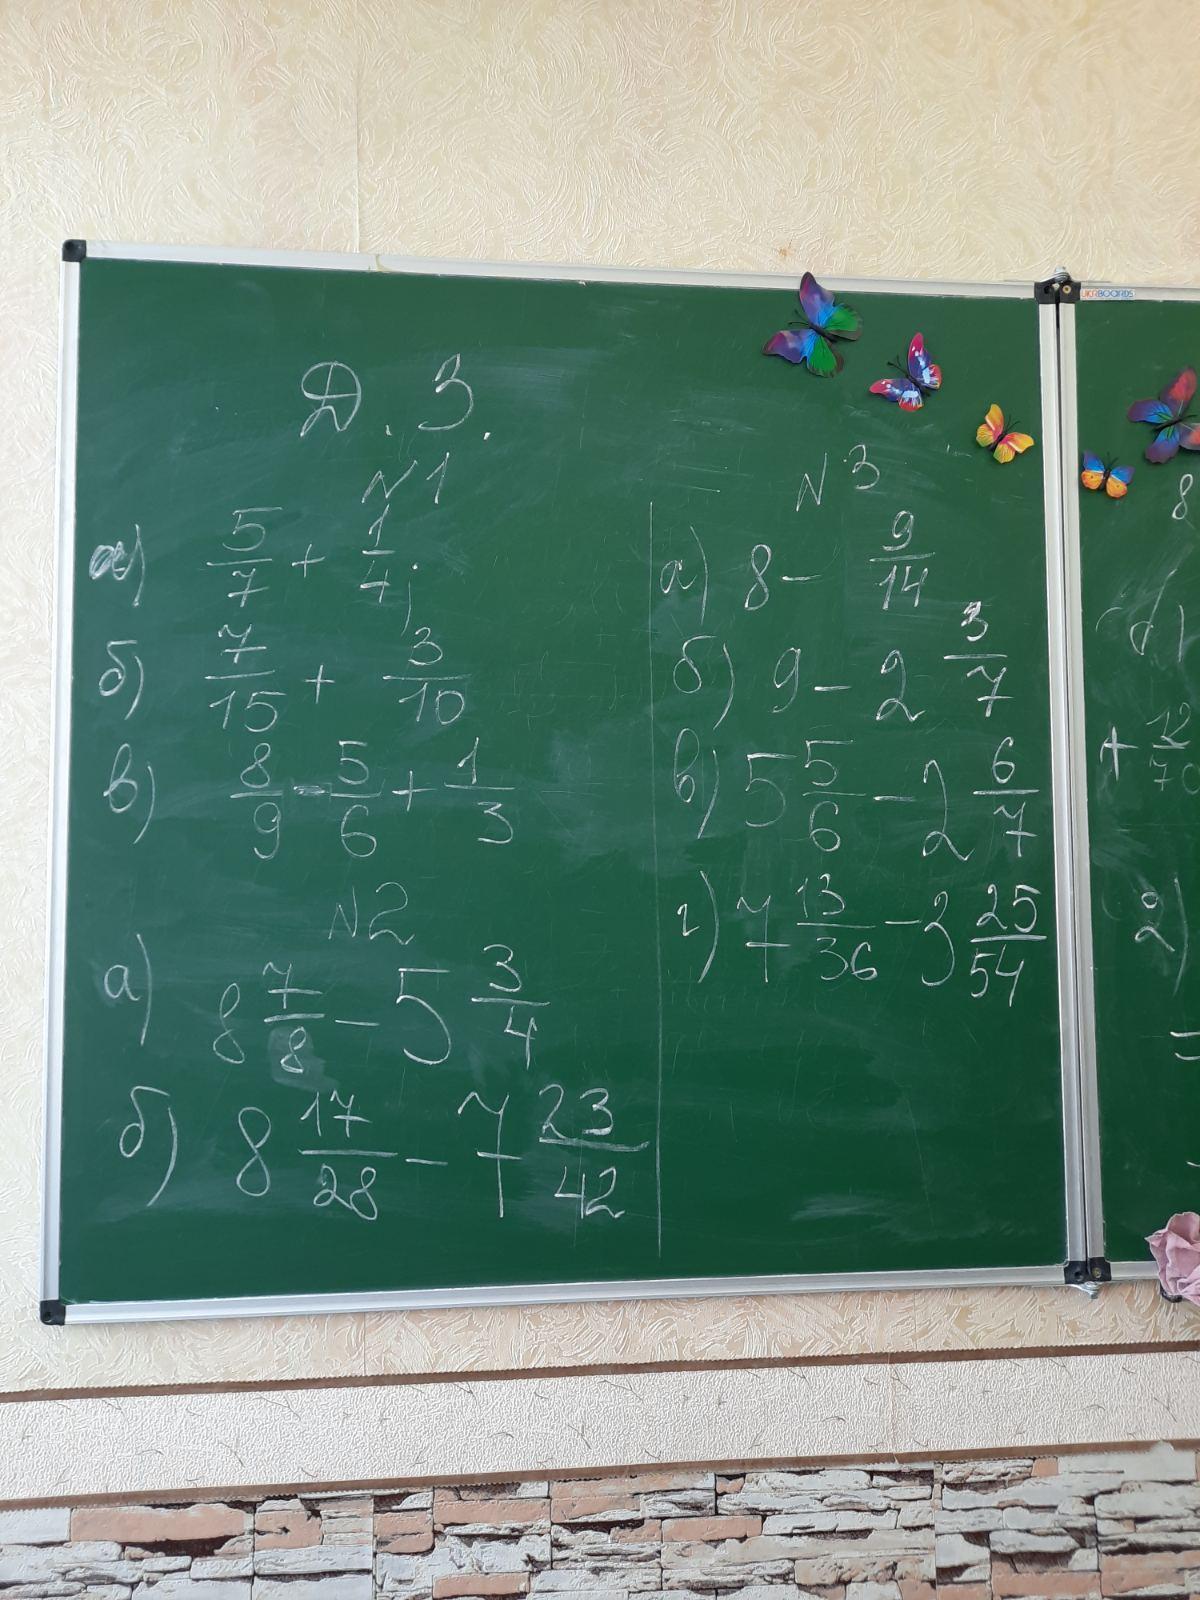 Д. З.
N1
а) 5/7 + 1/4;
б) 7/15 + 3/10
в) 8/9 - 5/6 + 1/3
N2
а) 8 7/8 - 5 3/4
б) 8 17/28 - 7 23/42
N3
а) 8 - 9/14
б) 9 - 2 3/7
в) 5 5/6 - 2 6/7
г) 7 13/36 - 3 25/54
UKRBOARDS
8
d)
+ 12/70
2)
=